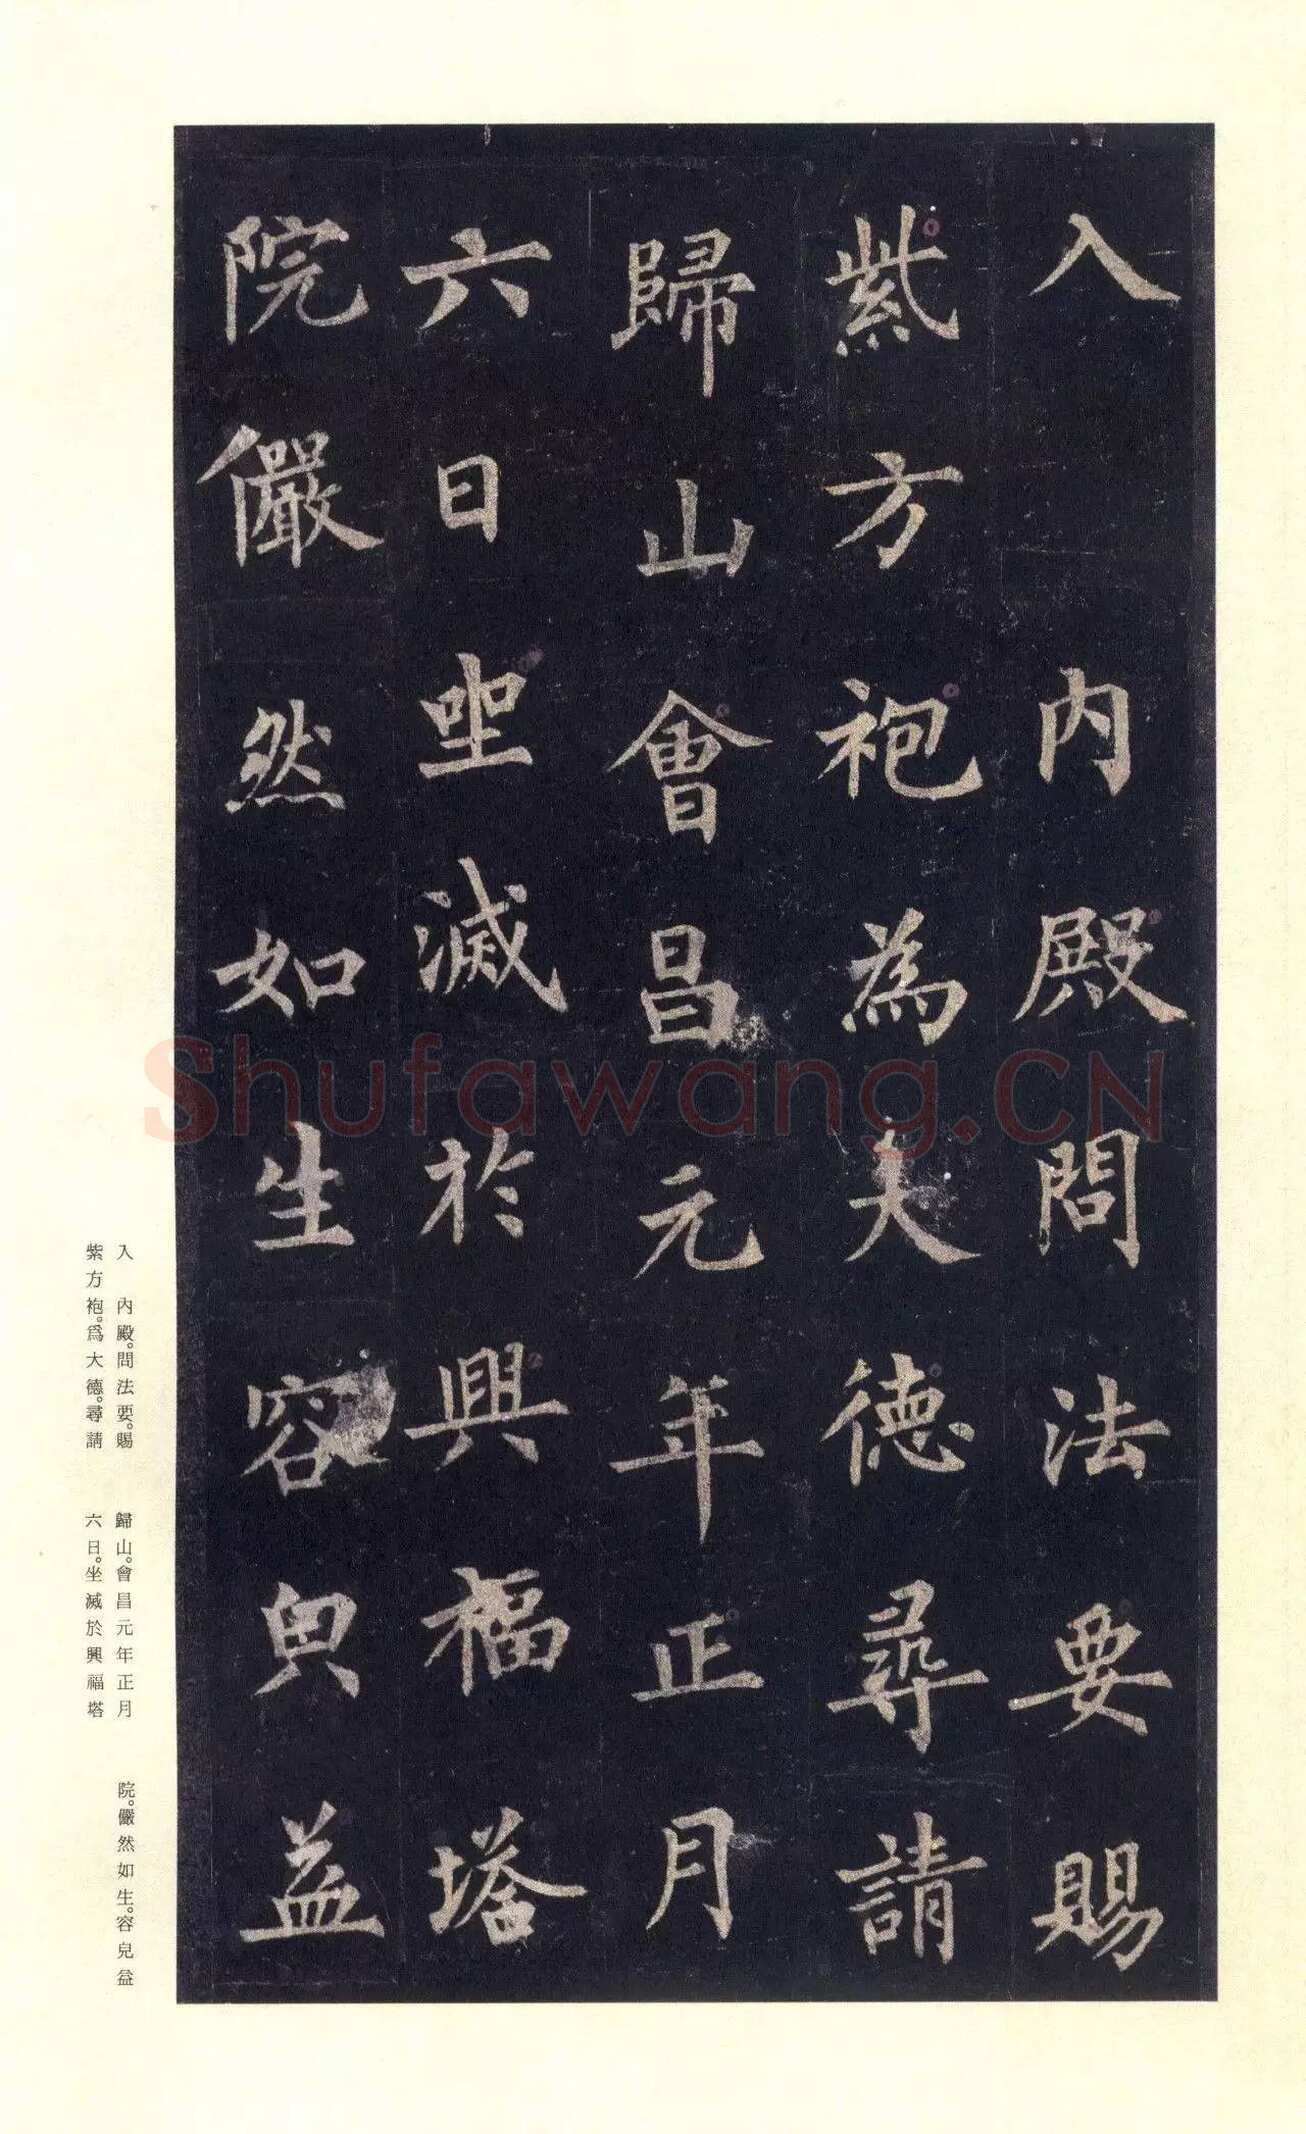 入　內殿問法要賜
紫方袍為大德尋請
歸山會昌元年正月
六日坐滅於興福塔
院儼然如生容皃益
Shufawang.CN
入　內殿。問法要。賜
紫方袍。爲大德。尋請
歸山。會昌元年正月
六日。坐滅於興福塔
院。儼然如生。容皃益